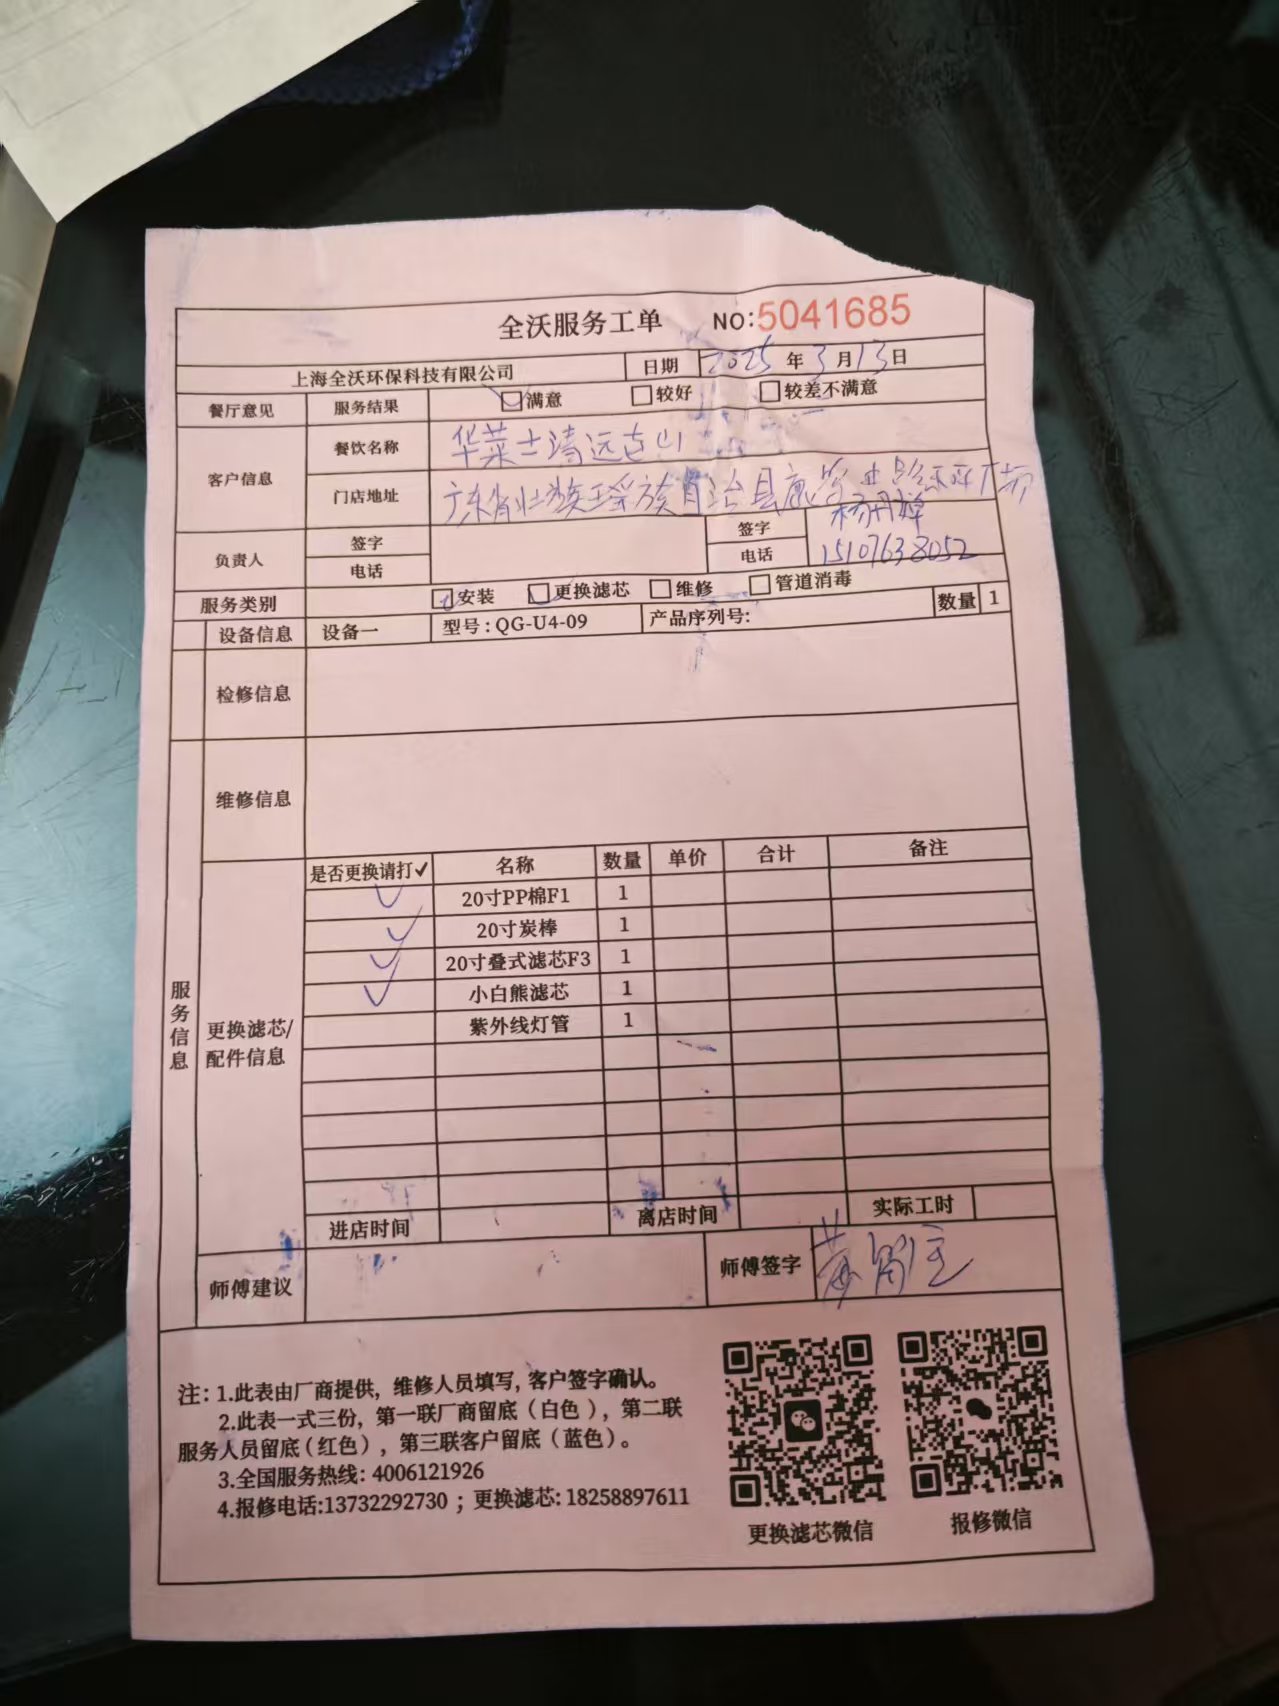 全沃服务工单 NO:5041685
上海全沃环保科技有限公司 日期 2025年3月13日
餐厅意见 服务结果 满意 较好 较差不满意
客户信息 餐饮名称 华莱士清远连山
门店地址 广东省壮族瑶族自治县
负责人 签字 签字 杨丹
电话 电话 15107638052
服务类别 安装 更换滤芯 维修 管道消毒
设备信息 设备一 型号:QG-U4-09 产品序列号: 数量 1
检修信息
维修信息
服务信息
更换滤芯/配件信息
是否更换请打✓ 名称 数量 单价 合计 备注
✓ 20寸PP棉F1 1
✓ 20寸炭棒 1
✓ 20寸叠式滤芯F3 1
✓ 小白熊滤芯 1
紫外线灯管 1
进店时间 离店时间 实际工时
师傅建议 师傅签字 黄
注:1.此表由厂商提供,维修人员填写,客户签字确认。
2.此表一式三份,第一联厂商留底(白色),第二联
服务人员留底(红色),第三联客户留底(蓝色)。
3.全国服务热线:4006121926
4.报修电话:13732292730;更换滤芯:18258897611
更换滤芯微信 报修微信